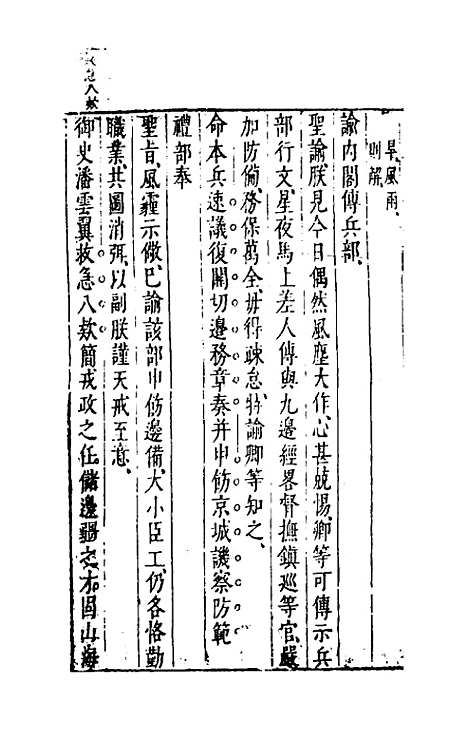 旱、風雨、
則解、
諭內閣傳兵部、
聖諭、朕見今日偶然風塵大作、心甚兢惕、卿等可傳示兵
部行文、星夜馬上差人傳與九邊經畧督撫鎮巡等官、嚴
加防備、務保萬全、毋得疎怠、特諭卿等知之、
命本兵速議復關切邊務章奏并申飭京城譏察防範
禮部奉
聖旨、風霾示儆、已諭該部申飭邊備、大小臣工、仍各恪勤
職業、共圖消弭、以副朕謹天戒至意、
御史潘雲翼救急八款簡戎政之任儲邊疆之才固山海
救急八款